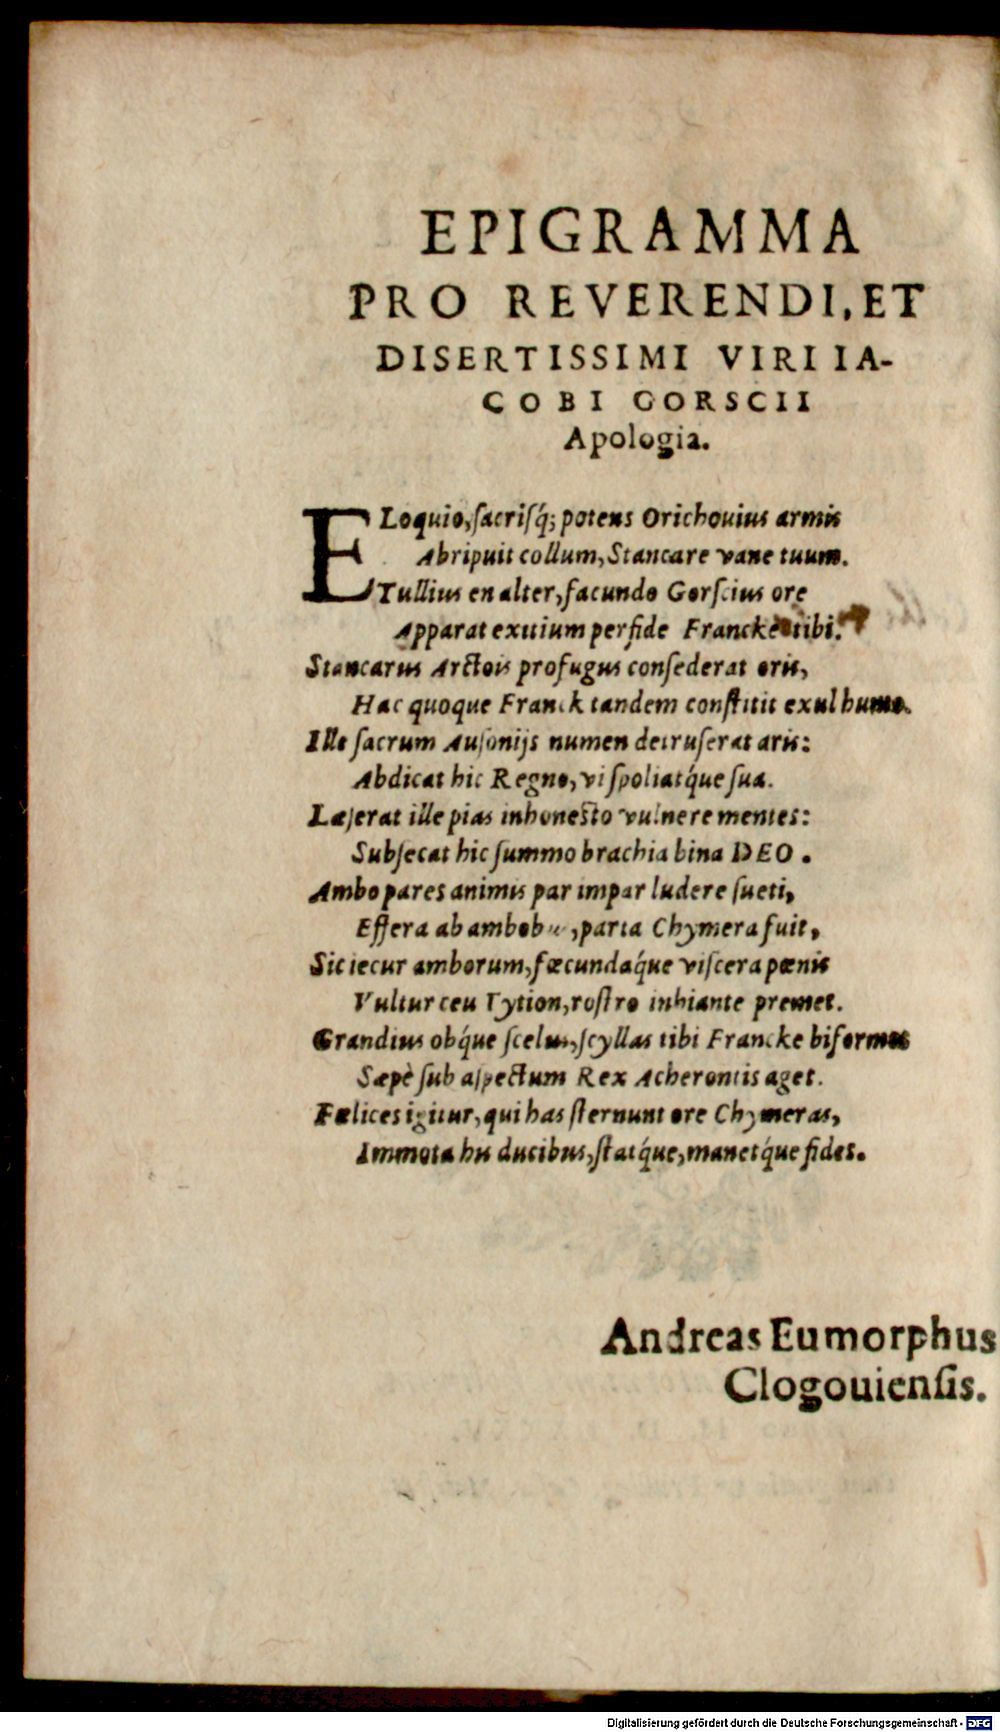 EPIGRAMMA
PRO REVERENDI, ET
DISERTISSIMI VIRI IA-
COBI GORSCII
Apologia.
ELoquio, ſacriſq́; potens Orichouius armis
Abripuit collum, Stancare vane tuum.
Tullius en alter, facundo Gorſcius ore
Apparat exitium perfide Francke tibi.
Stancarus Arctois profugus conſederat oris,
Hac quoque Franck tandem conſtitit exul humo.
Ille ſacrum Auſonijs numen detruſerat aris:
Abdicat hic Regno, vi ſpoliatq́ue ſua.
Læſerat ille pias inhonesto vulnere mentes:
Subſecat hic ſummo brachia bina DEO.
Ambo pares animis par impar ludere ſueti,
Effera ab ambobus, parta Chymera fuit,
Sic iecur amborum, fœcundaq́ue viſcera pœnis
Vultur ceu Tytion, roſtro inhiante premet.
Grandius obq́ue ſcelus, ſcyllas tibi Francke biformes
Sæpè ſub aſpectum Rex Acherontis aget.
Fœlices igitur, qui has ſternunt ore Chymeras,
Immota his ducibus, ſtatq́ue, manetq́ue fides.
Andreas Eumorphus
Clogouienſis.
Digitalisierung gefördert durch die Deutsche Forschungsgemeinschaft - DFG